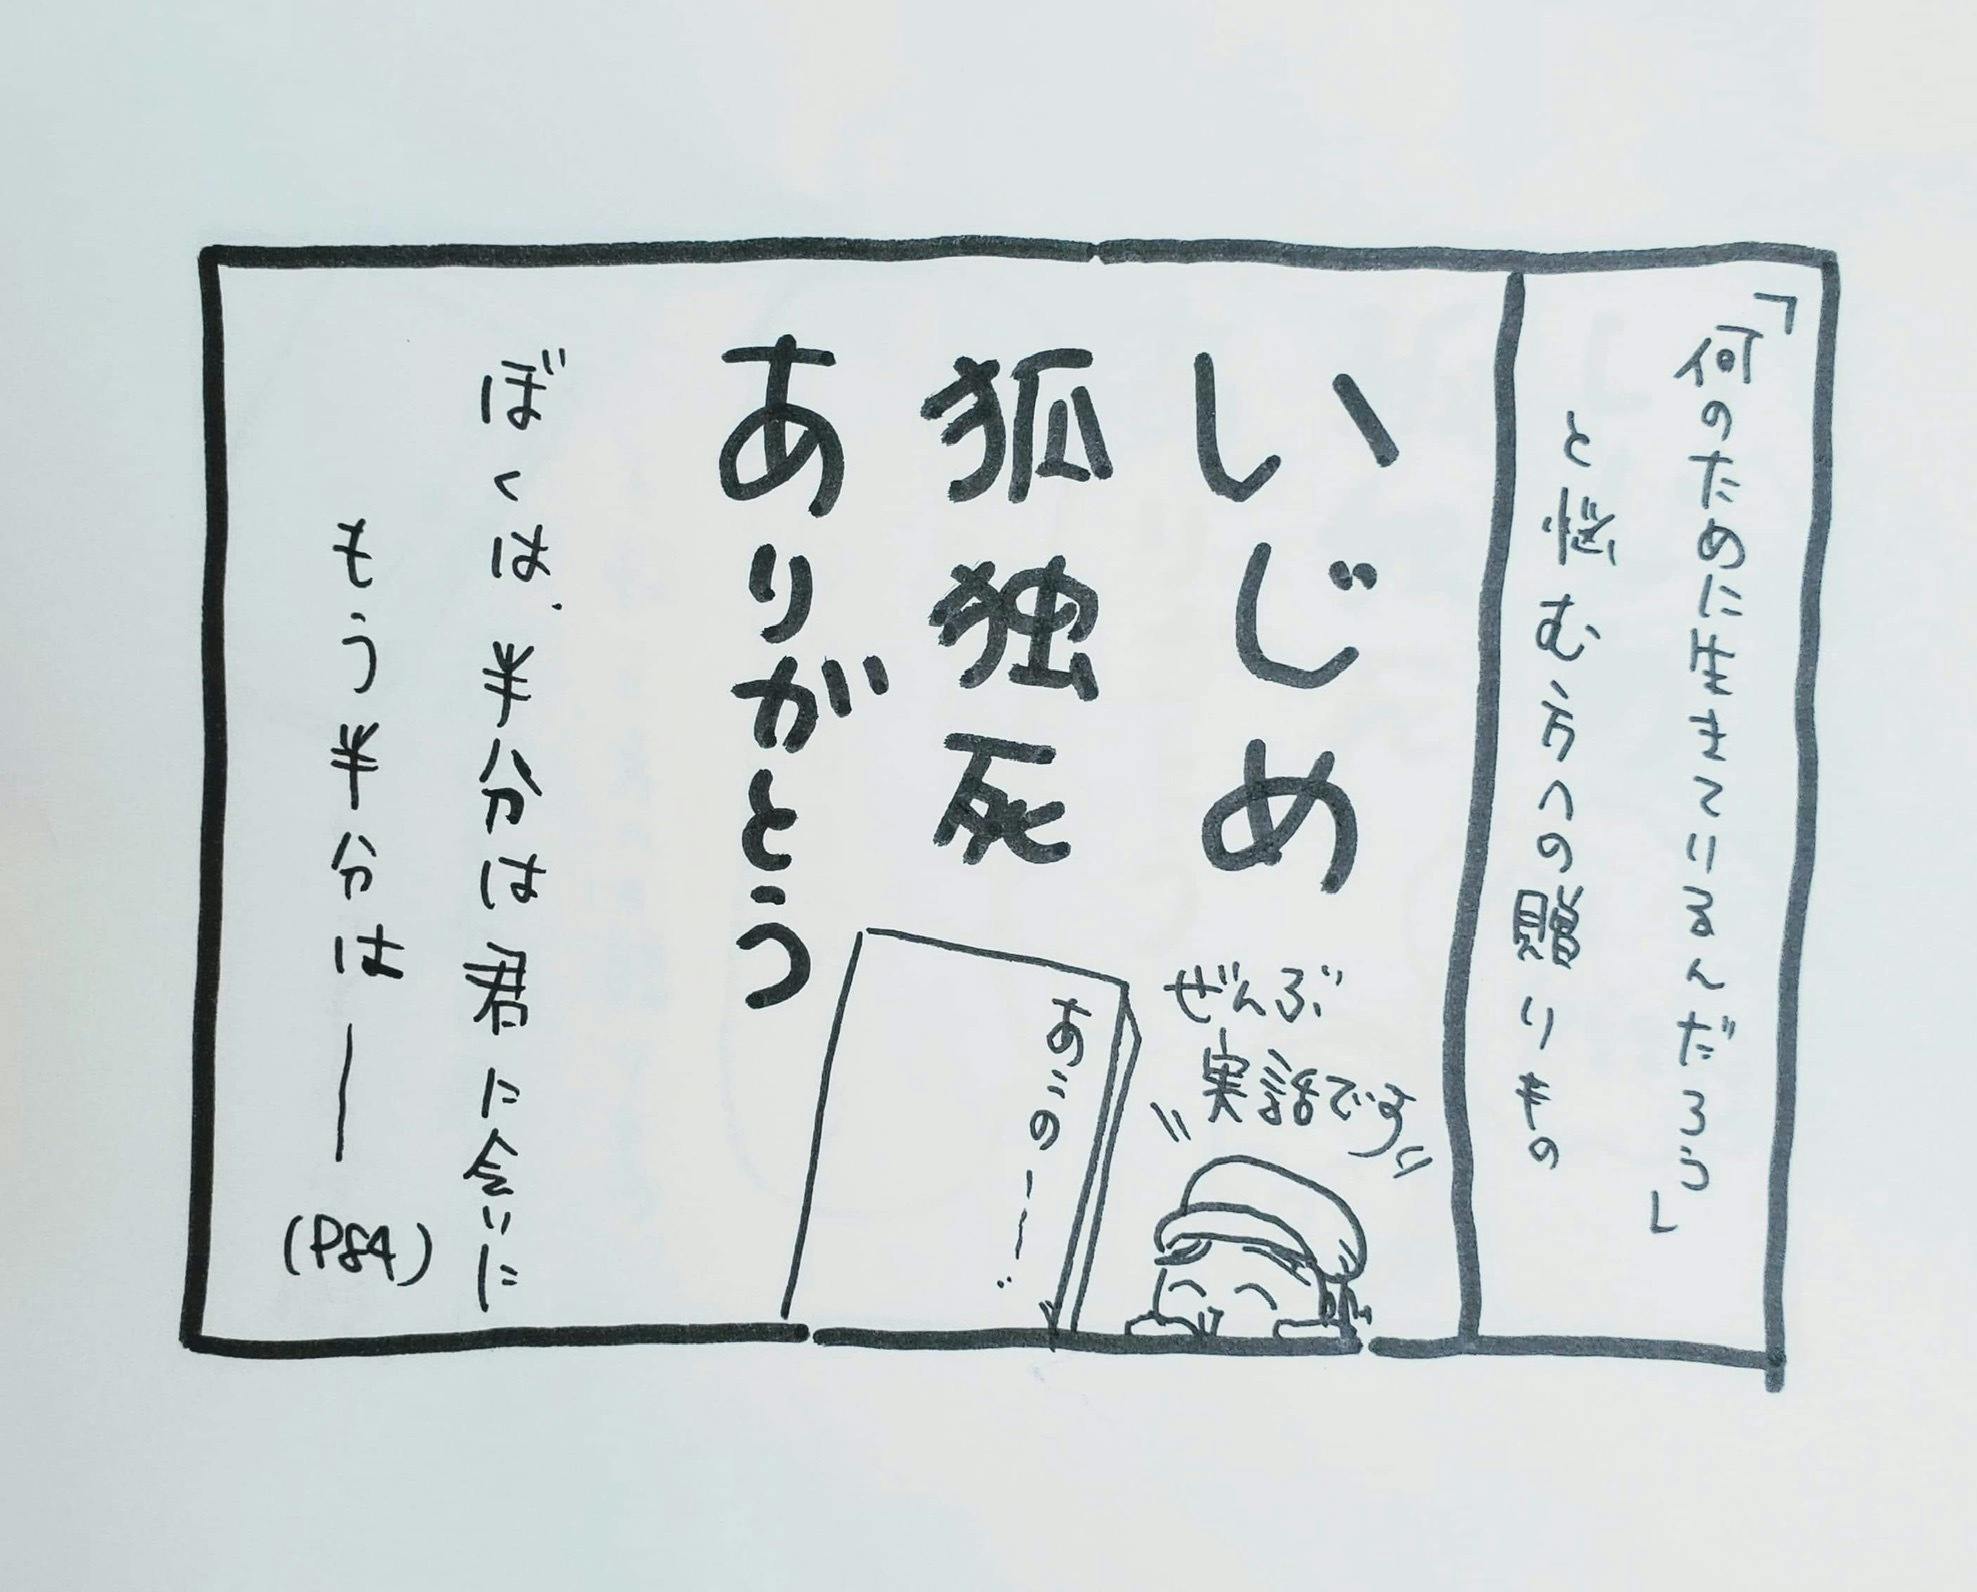 「何のために生きているんだろう」
と悲む方への贈りもの
いじめ
狐独死
ありがとう
ぜんぶ
実話です
あこの——…
ぼくは、半分は君に会いに
もう半分は——(P84)